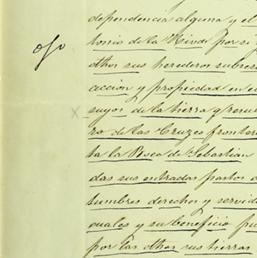 ojo
dependencia alguna y el
tonio de la Rinde por si y
dthos sus herederos subces
accion y propiedad en el
suyor de la tierra q.e renun
ra de las Cruzes frontera
ta la Pesca de Sebastian
das sus entradas pastos a
sumbres derechos y servid
cuales y su beneficio pu
por las dthas sus tierras